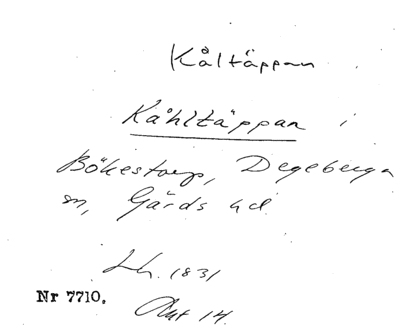 Kåltäppan
Kåhltäppan i
Bökestorp, Degeberga
sn, Gärds hd
Lh. 1831
Nr 7710.
Akt 14